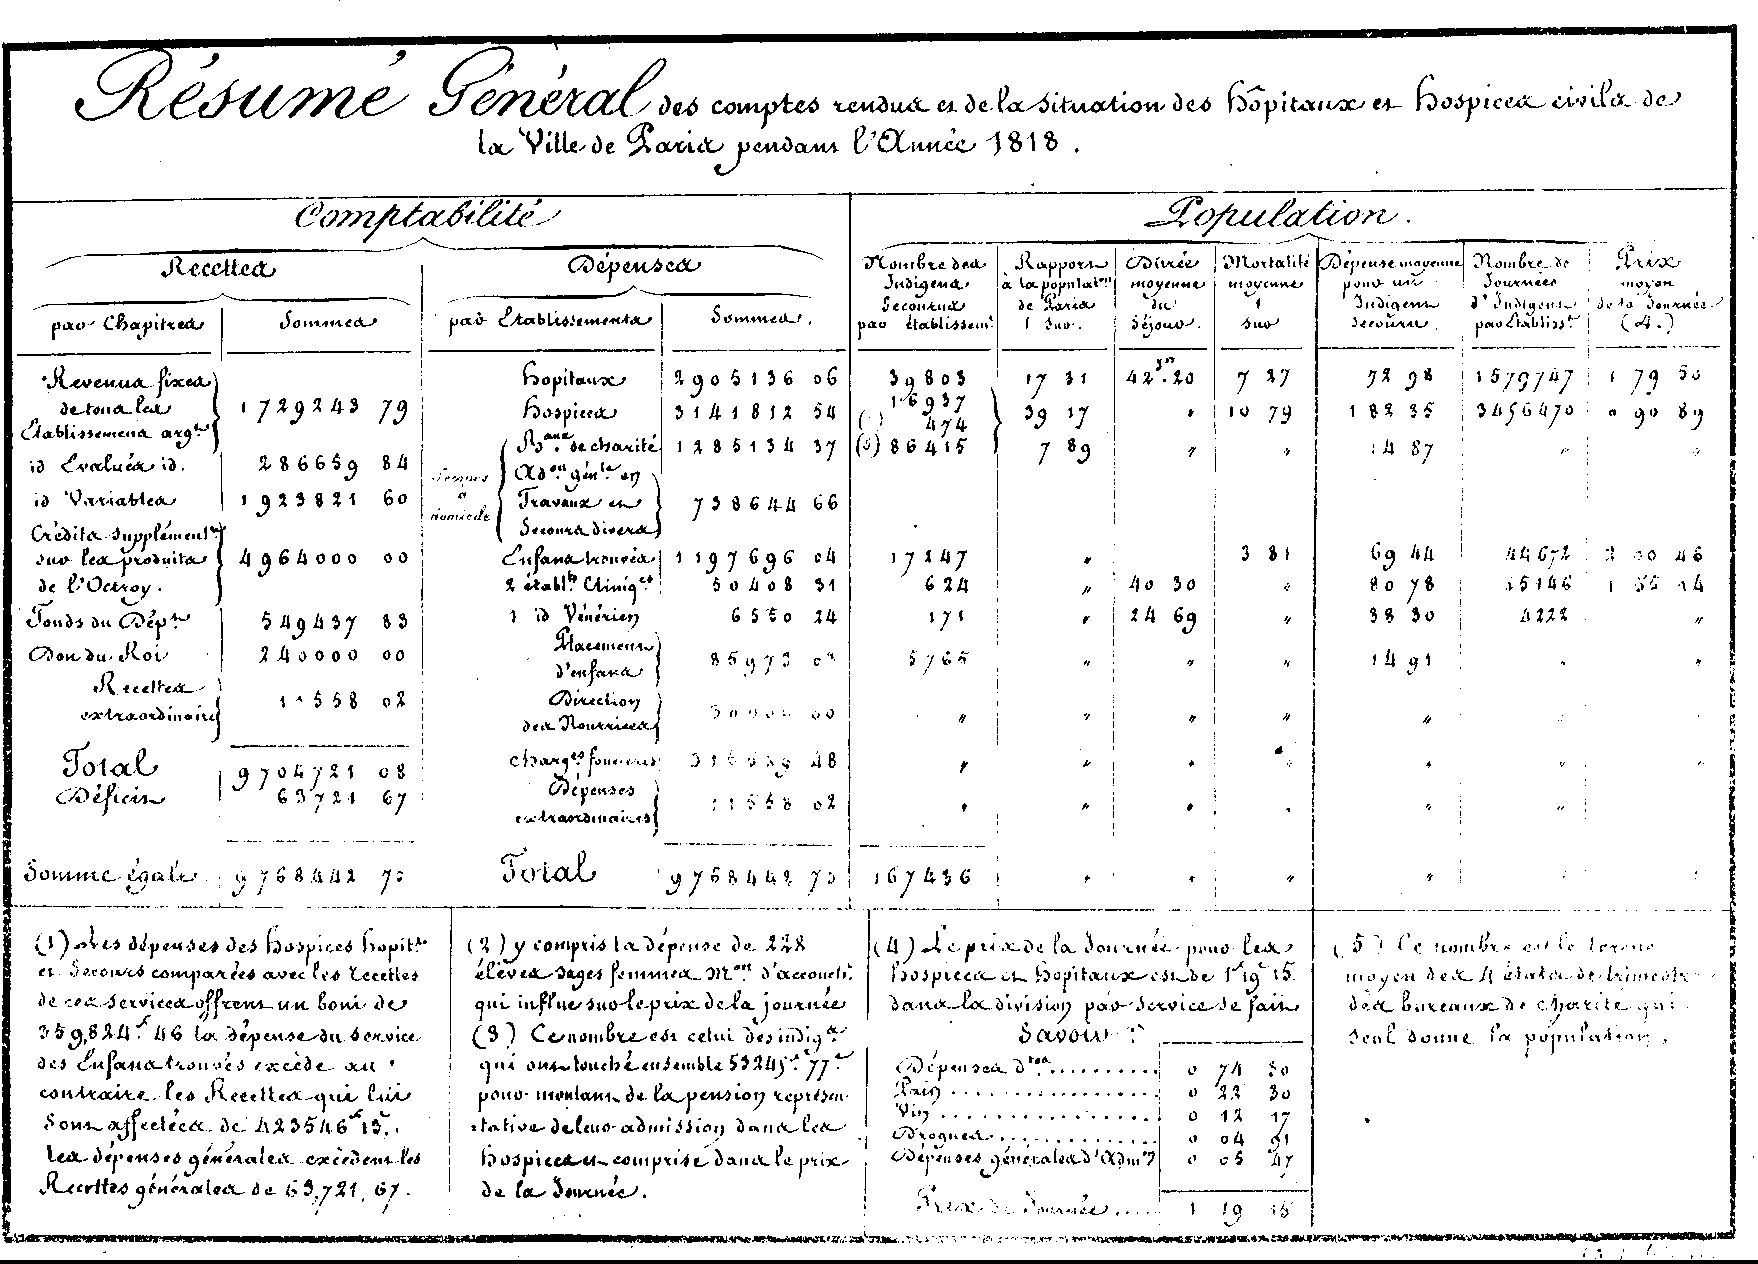 Résumé Général des comptes rendus et de la situation des hôpitaux et hospices civils de
la Ville de Paris pendant l'Année 1818.
Comptabilité
Population.
Recettes
Dépenses
par Chapitres
Sommes
par Etablissements
Sommes.
Nombre des
Indigens
Secourus
par établissemt
Rapport
à la populaton
de Paris
1 sur.
Durée
moyenne
du
Séjour.
Mortalité
moyenne
1
sur
Dépense moyenne
pour un
Indigent
secouru.
Nombre de
Journées
d'Indigens
par Établisst
Prix
moyen
de la Journée
(4.)
Revenus fixes
de tous les
Etablissemens argt
1729243 79
id Evalués id.
286659 84
id Variables
1923821 60
Crédits supplément
sur les produits
de l'Octroy.
4964000 00
Fonds du Dépt
549437 83
Don du Roi
240000 00
Recettes
extraordinaires
558 02
Total
9704721 08
Déficit
63721 67
Somme égale
9768442
hopitaux 2905136 06 39803 17 31 42 js. 20 7 27 72 98 1579747 1 79 50
hospices 3141812 54 16937 474 39 17 " 10 79 182 35 3456470 0 90 89
Secours à domicile
Baux de charité 1285134 37 (5) 86415 7 89 " " 14 87 " "
Adon génle en
Travaux et
Secours divers
738644 66
Enfans trouvés 1197696 04 17247 " 3 81 69 44 44672 2 00 46
2 établts Cliniqes 50408 31 624 " 40 30 " 80 78 1 55 14
1 id Vénérien 24 171 " 24 69 " 38 30 4222 "
Placement
d'enfans
85973 5765 " " " 1491 " "
Direction
des Nourrices
00 " " " " "
charges foncières 48
Dépenses
extraordinaires
11558 02
Total 9768442 167436
(1) Les dépenses des hospices hopitx
et Secours comparées avec les recettes
de ces services offrent un boni de
359,824f 46 la dépense du service
des Enfans trouvés excède au
contraire les Recettes qui lui
sont affectées de 423546f 13.
Les dépenses générales excèdent les
Recettes générales de 63,721, 67.
(2) y compris la dépense de 228
élèves sages femmes Mon d'accoucht
qui influe sur le prix de la journée
(3) Ce nombre est celui des indigs
qui ont touché ensemble 53245f 77c
pour montant de la pension représen-
tative de leur admission dans les
hospices et comprise dans le prix
de la Journée.
(4) Le prix de la Journée pour les
hospices et hopitaux est de 1f 19c 15.
dans la division par service se fait
Savoir :
Dépenses dtes 0 74 30
Pain 0 22 30
Vin 0 12 17
Drogues 0 04 91
Dépenses générales d'Admon 0 05 47
Prix de Journée 1 19 15
(5) Ce nombre est le terme
moyen des 4 états de trimestre
des bureaux de charité qui
seul donne la population.